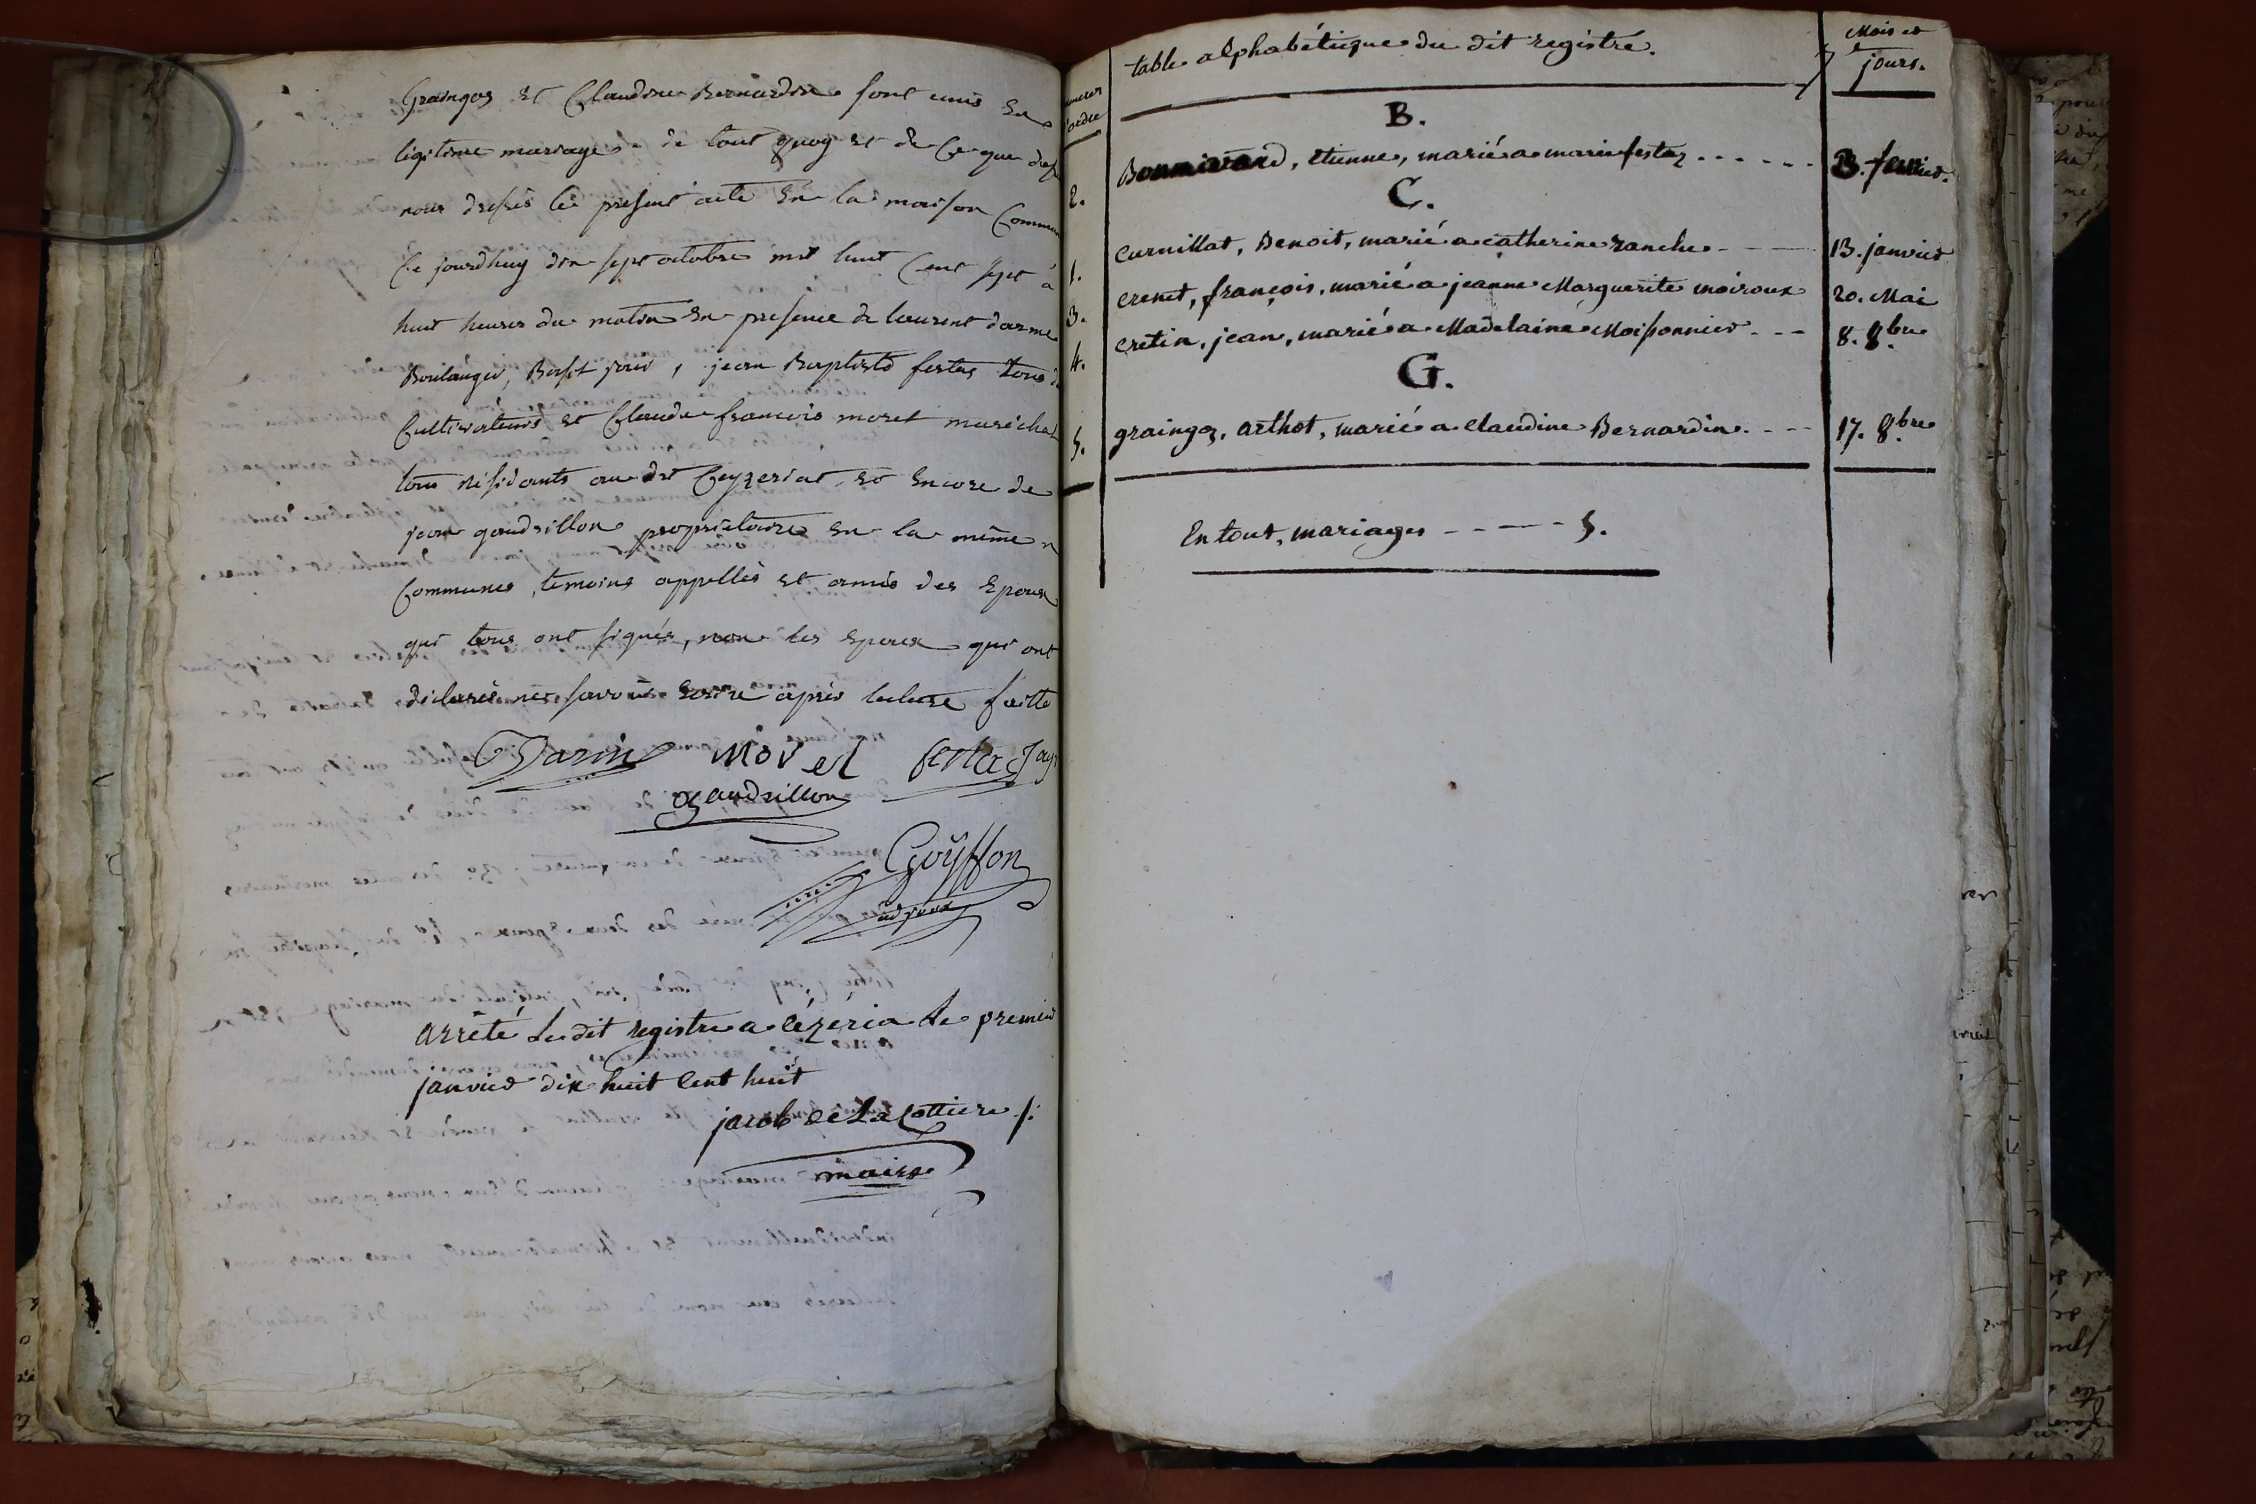 Graingoz et Claudine Bernardin sont unis en
légitime mariage. de tout quoy et de ce que dess
nous dressés le présent acte en la maison commun
ce jourdhuy dix sept octobre mil huit cent sept à
huit heures du matin en présence de laurent darme
Boulanger, jean Baptiste festaz tous
cultivateurs et Claude francois moret maréchal
tous résidants au dit Ceyzeriat et encore de
jean gaudrillon propriétaire en la même
Commune, temoins appellés et amis des Epoux
qui tous ont signés, non les epoux qui ont
déclarés ne savoir ecrire après lecture faitte
Darm Morel festaz Jay
Gaudrillon
Goÿffon
adjoint
arrêté le dit registre a Cézéria le premier
janvier dix huit cent huit
jacob de La Cottiere
maire
table alphabétique du dit registre.
Mois et
jours.
numeros
d'ordre
B.
2. Bonnivard, etienne, marié a marie festaz ------ 3. fevrier.
C.
1. Curnillat, Benoit, marié a catherine ranche ---- 13. janvier
3. crenet, françois, marié a jeanne Marguerite moiroux 20. Mai
4. cretin, jean, marié a Madelaine Moissonnier --- 8. 8.bre
G.
5. graingoz, arthot, marié a claudine Bernardin. --- 17. 8.bre
En tout, mariages ------ 5.